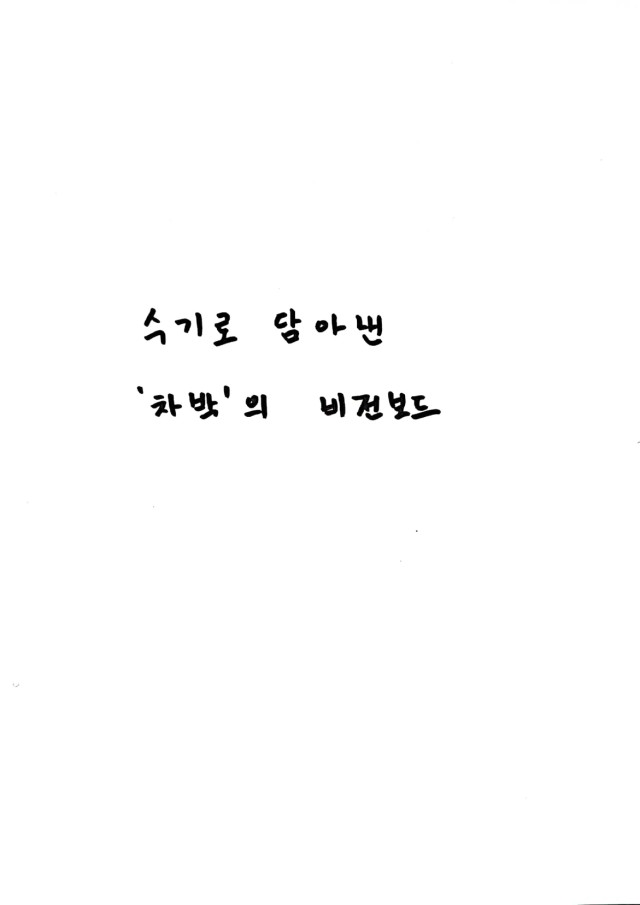 수기로 담아낸
'차박'의 비전보드